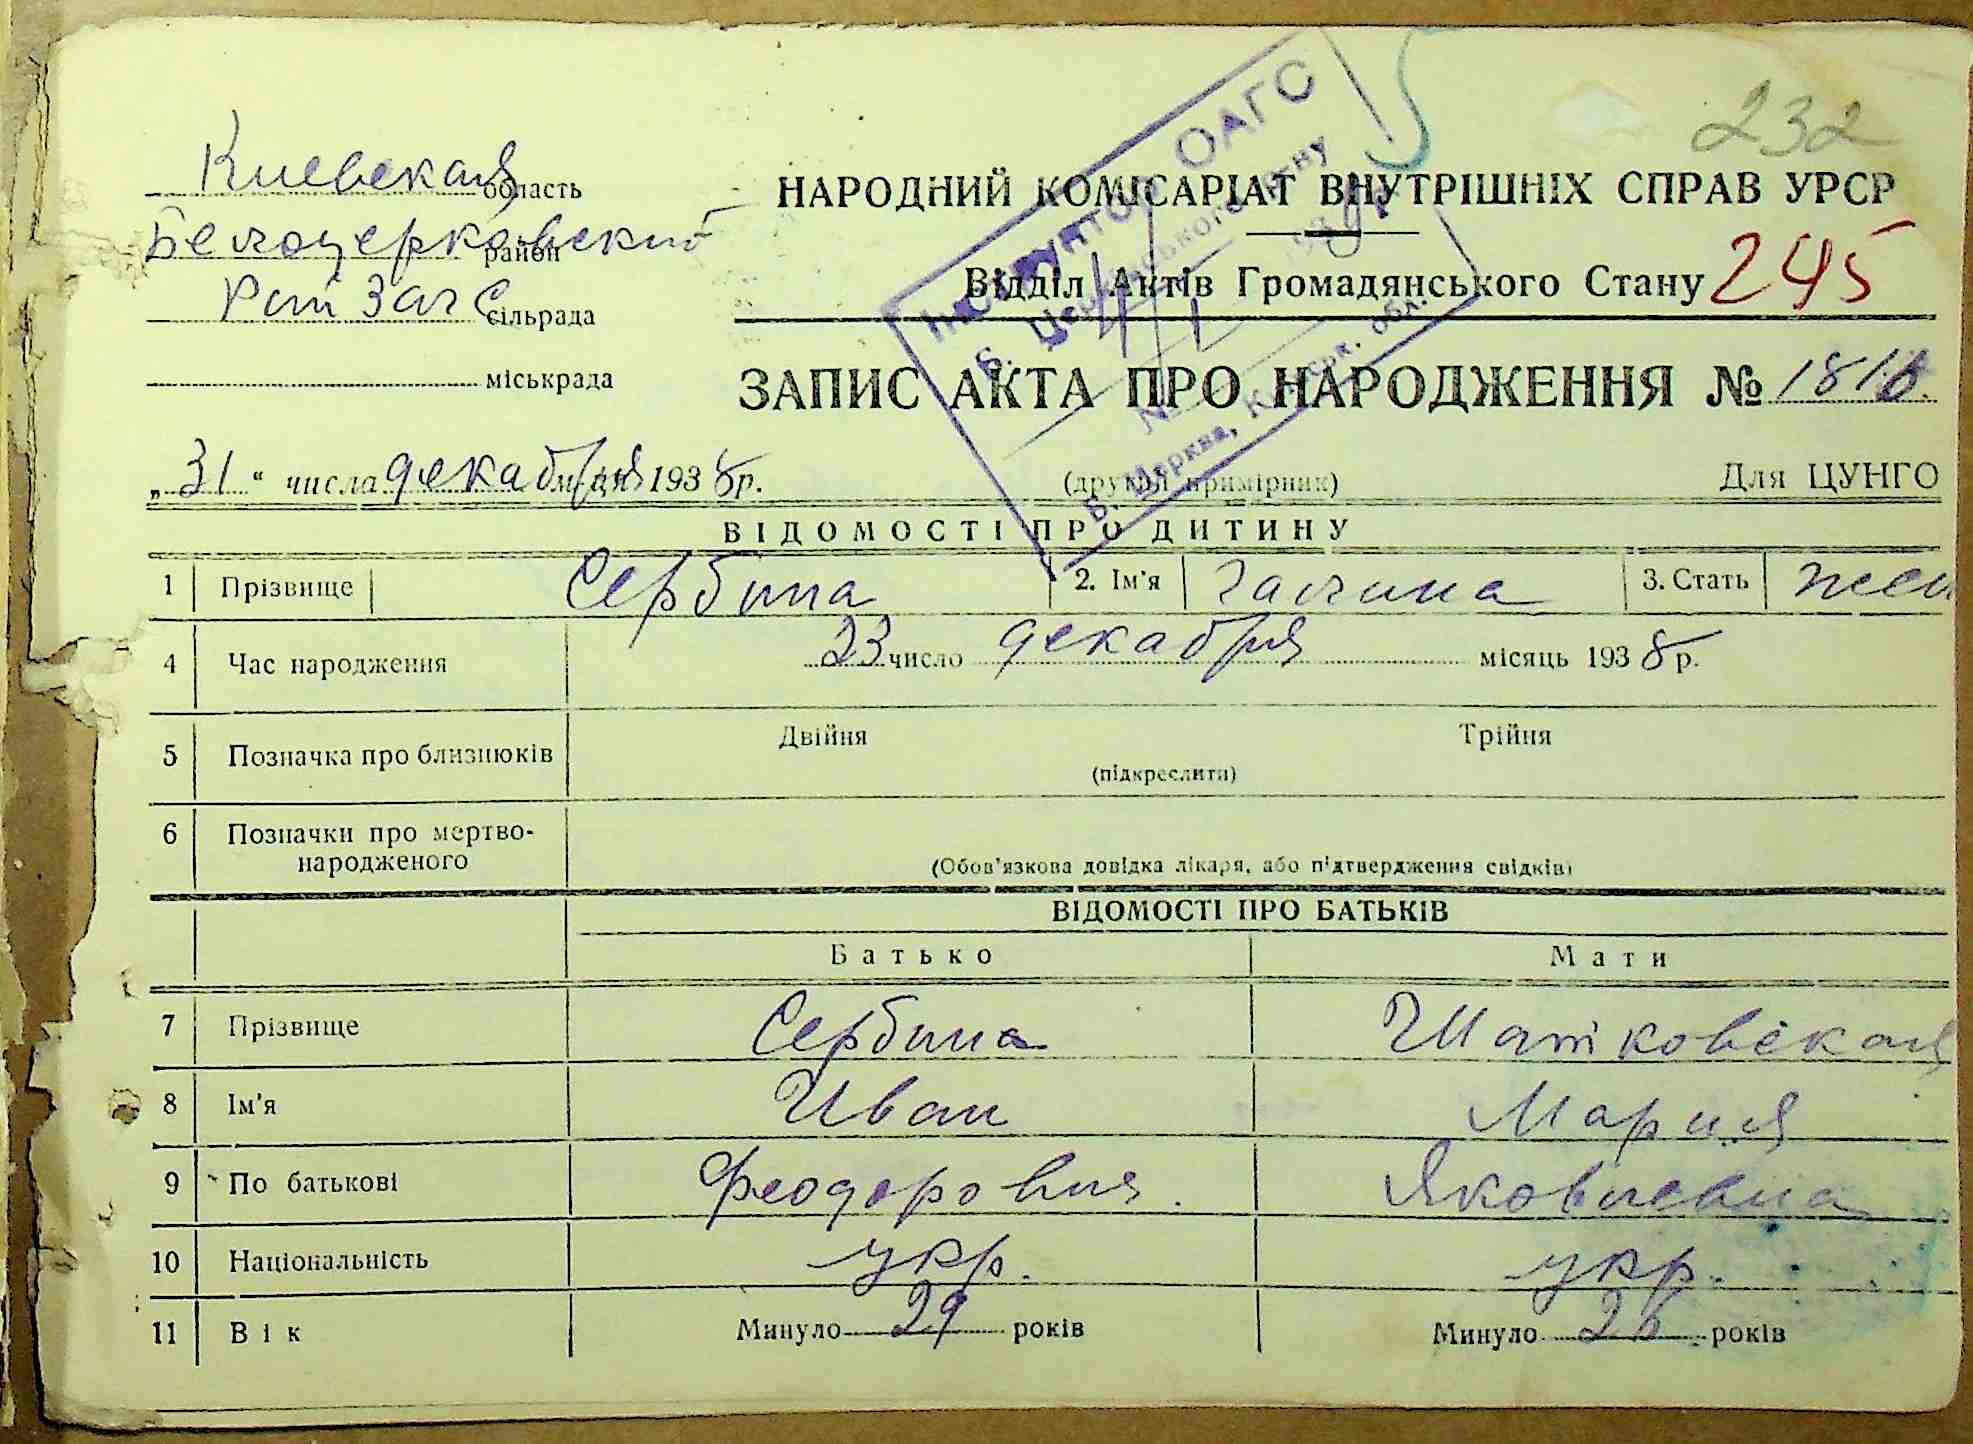 232
Киевская область
НАРОДНИЙ КОМІСАРІАТ ВНУТРІШНІХ СПРАВ УРСР
Белоцерковский район
Відділ Актів Громадянського Стану 245
Рай ЗАГС сільрада
міськрада
ЗАПИС АКТА ПРО НАРОДЖЕННЯ № 1816
Інспектор ОАГС
Б. Церква, Київськ. обл.
„31“ числа декабря м-ця 1938 р.
(другий примірник)
Для ЦУНГО
ВІДОМОСТІ ПРО ДИТИНУ
1 Прізвище Сербина 2. Ім'я Галина 3. Стать жен
4 Час народження 23 число декабря місяць 1938 р.
5 Позначка про близнюків Двійня Трійня
(підкреслити)
6 Позначки про мертво-
народженого
(Обов'язкова довідка лікаря, або підтвердження свідків)
ВІДОМОСТІ ПРО БАТЬКІВ
Батько Мати
7 Прізвище Сербина Шатковская
8 Ім'я Иван Мария
9 По батькові Феодорович Яковлевна
10 Національність укр. укр.
11 Вік Минуло 29 років Минуло 26 років